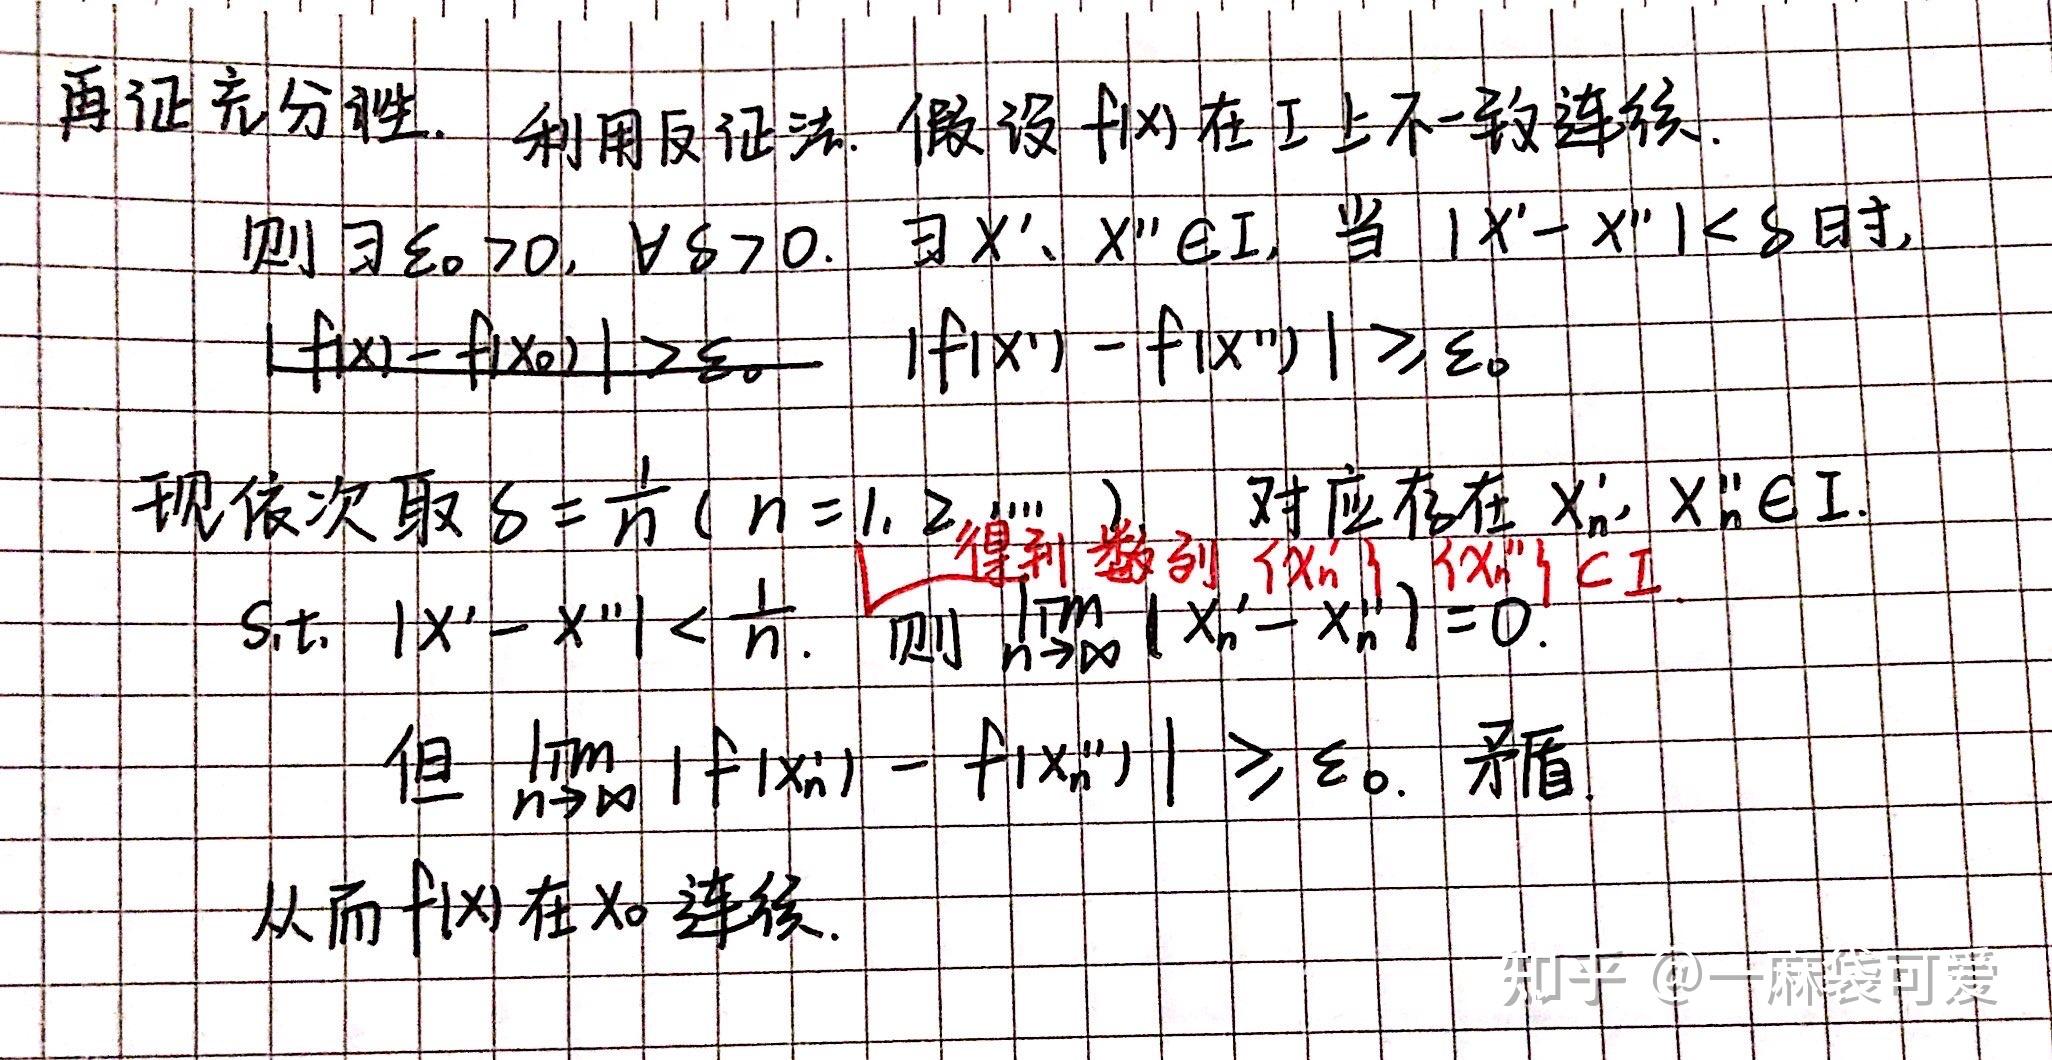 再证充分性. 利用反证法. 假设 f(x) 在 I 上不一致连续.
则 ∃ε₀>0, ∀δ>0. ∃x'、x''∈I, 当 |x'-x''|<δ时,
|f(x)-f(x₀)|>ε₀ |f(x')-f(x'')|≥ε₀
现依次取 δ=1/n (n=1,2,……), 对应存在 xₙ', xₙ''∈I.
得到数列 {xₙ'} {xₙ''}⊂I.
s.t. |x'-x''|<1/n. 则 lim n→∞ |xₙ'-xₙ''|=0.
但 lim n→∞ |f(xₙ')-f(xₙ'')|≥ε₀. 矛盾.
从而 f(x) 在 x₀ 连续.
知乎 @一麻袋可爱